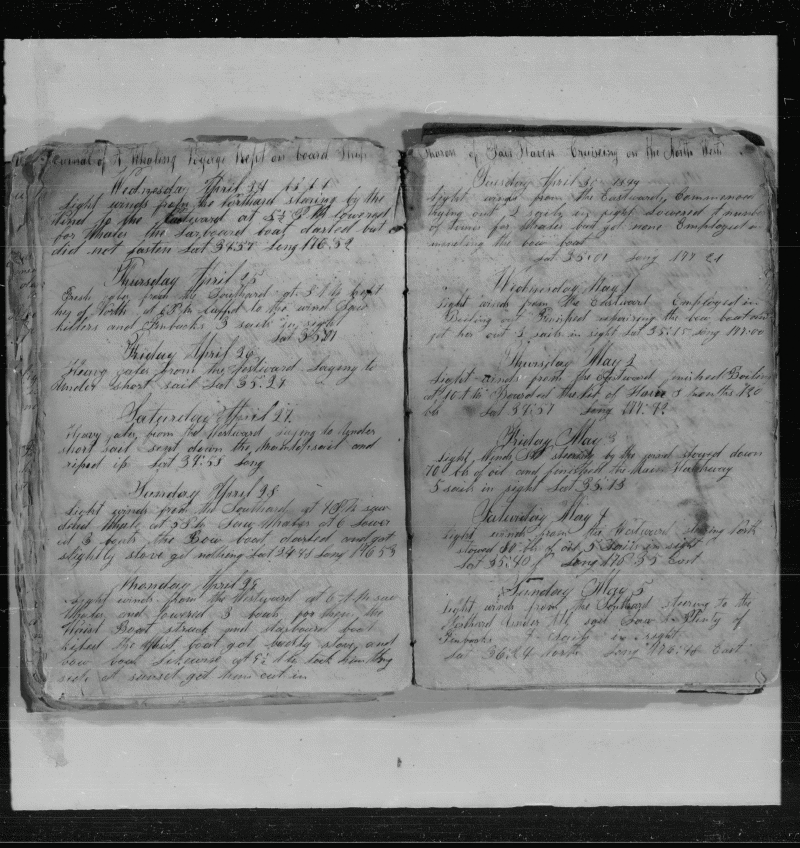 Journal of A Whaling Voyage Kept on board Ship
Wednesday April 24
Light winds from the Northard steering by the
wind to the Eastward at 5½ P M Lowered
for Whales the Larboard boat darted but
did not fasten Lat 34.57 Long 176.52
Thursday April 25
Fresh gales from the Southard at
by North at 6 P M luffed to the wind
and Finbacks 3 sails in sight
Lat 35.21
Friday April 26
Heavy gales from the Westward Laying to
under short sail Lat 35.24
Saturday April 27
Heavy gales from the Westward laying to under
short sail sent down the Maintopsail and
riped it Lat 34.58 Long
Sunday April 28
Light winds from the Southard at 4 P M saw
dead Whale at 5 P M Saw Whales at 6 Lower
ed 3 boats the Bow boat darted and got
slightly stove got nothing Lat 34.48 Long 176.53
Monday April 29
Light winds from the Westward at 6 A M saw
Whales and lowered 3 boats for them the
Waist Boat struck and starboard boat
killed the Waist boat got badly stove and
bow boat Likewise at 9½ A M took him along
side at sunset got him cut in
Sharon of Fair Haven Cruising on the North West
Tuesday April 30
Light winds from the Eastward, Commenced
trying out 2 sails in sight Lowered
of times for Whales but got none Employed in
mending the bow boat
Lat 35.01 Long 177.21
Wednesday May 1
Light winds from the Eastward Employed in
Boiling out finished repairing the bow boat and
got her out 3 sails in sight Lat 35.15 Long 177.00
Thursday May 2
Light winds from the Eastward finished Boiling
at 10 A M Boarded the of Haven 8 months 120
bb Lat 34.57 Long 177.12
Friday May 3
Light winds steering by the wind stowed down
70 bb of oil and the Main Hatchway
5 sails in sight Lat 35.13
Saturday May 4
Light winds from the Westward steering North
stowed 80 bb of oil 5 Sails in sight
Lat 35.40 Long 176.35 East
Sunday May 5
Light winds from the Southard steering to the
Westward under all sail Saw Plenty of
Finbacks 7 sails in sight
Lat 36.24 North Long 176.48 East